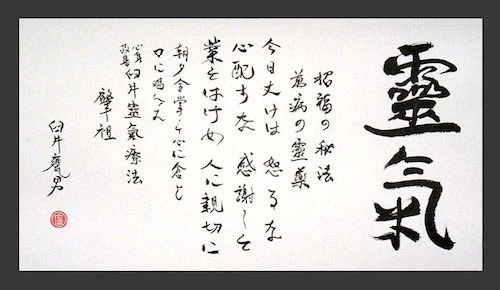 靈氣
招福の秘法
萬病の靈薬
今日丈けは 怒るな
心配すな 感謝して
業をはげめ 人に親切に
朝夕合掌して心に念じ
口に唱へよ
心身改善 臼井靈氣療法
肇祖
臼井甕男